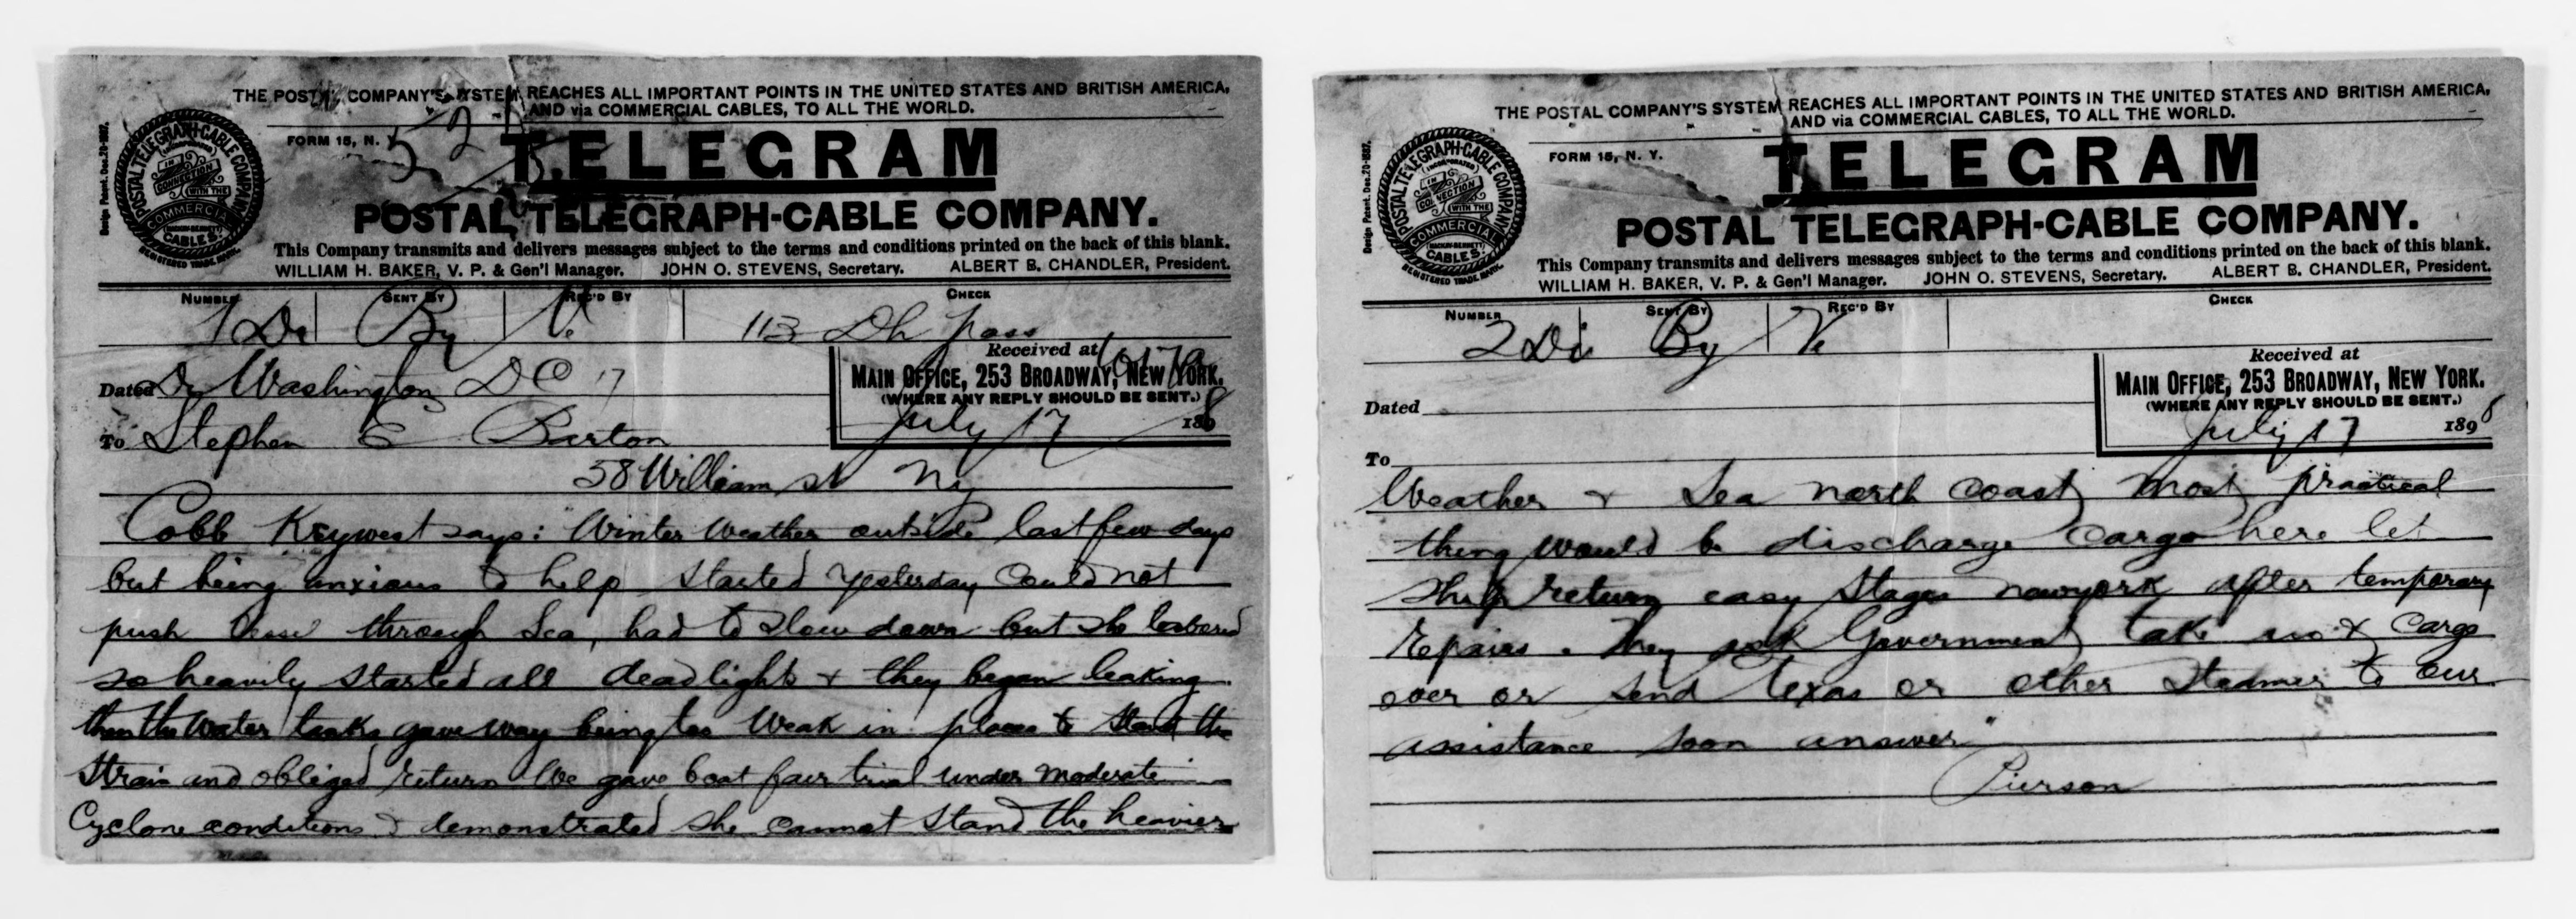 THE POSTAL COMPANY'S SYSTEM REACHES ALL IMPORTANT POINTS IN THE UNITED STATES AND BRITISH AMERICA,
AND via COMMERCIAL CABLES, TO ALL THE WORLD.
Design Patent. Dec. 20-1887.
POSTAL TELEGRAPH-CABLE COMPANY
(INCORPORATED)
IN CONNECTION WITH THE
COMMERCIAL CABLES.
(MACKAY-BENNETT)
REGISTERED TRADE MARK.
FORM 15, N. Y.
52
TELEGRAM
POSTAL TELEGRAPH-CABLE COMPANY.
This Company transmits and delivers messages subject to the terms and conditions printed on the back of this blank.
WILLIAM H. BAKER, V. P. & Gen'l Manager. JOHN O. STEVENS, Secretary. ALBERT B. CHANDLER, President.
NUMBER SENT BY REC'D BY CHECK
1 Dr By V. 113 Dh pass
Received at
Dated Dr Washington DC 17
MAIN OFFICE, 253 BROADWAY, NEW YORK.
(WHERE ANY REPLY SHOULD BE SENT.)
July 17 1898
To Stephen E Barton
58 William st Ny
Cobb Keywest says: "Winter weather outside last few days
but being anxious to help started yesterday Could not
push through Sea, had to slow down but she labored
so heavily started all deadlights & they began leaking
then the water tanks gave way being too weak in places to stand the
strain and obliged return We gave boat fair trial under moderate
Cyclone conditions & demonstrated she cannot stand the heavier
THE POSTAL COMPANY'S SYSTEM REACHES ALL IMPORTANT POINTS IN THE UNITED STATES AND BRITISH AMERICA,
AND via COMMERCIAL CABLES, TO ALL THE WORLD.
Design Patent. Dec. 20-1887.
POSTAL TELEGRAPH-CABLE COMPANY
(INCORPORATED)
IN CONNECTION WITH THE
COMMERCIAL CABLES.
(MACKAY-BENNETT)
REGISTERED TRADE MARK.
FORM 15, N. Y.
TELEGRAM
POSTAL TELEGRAPH-CABLE COMPANY.
This Company transmits and delivers messages subject to the terms and conditions printed on the back of this blank.
WILLIAM H. BAKER, V. P. & Gen'l Manager. JOHN O. STEVENS, Secretary. ALBERT B. CHANDLER, President.
NUMBER SENT BY REC'D BY CHECK
2 By V
Received at
MAIN OFFICE, 253 BROADWAY, NEW YORK.
(WHERE ANY REPLY SHOULD BE SENT.)
Dated
July 17 1898
To
Weather & Sea north coast most practical
thing would be discharge cargo here let
ship return easy stages newyork after temporary
repairs. They ask Government take us & cargo
over or send Texas or other steamer to our
assistance soon answer"
Pierson